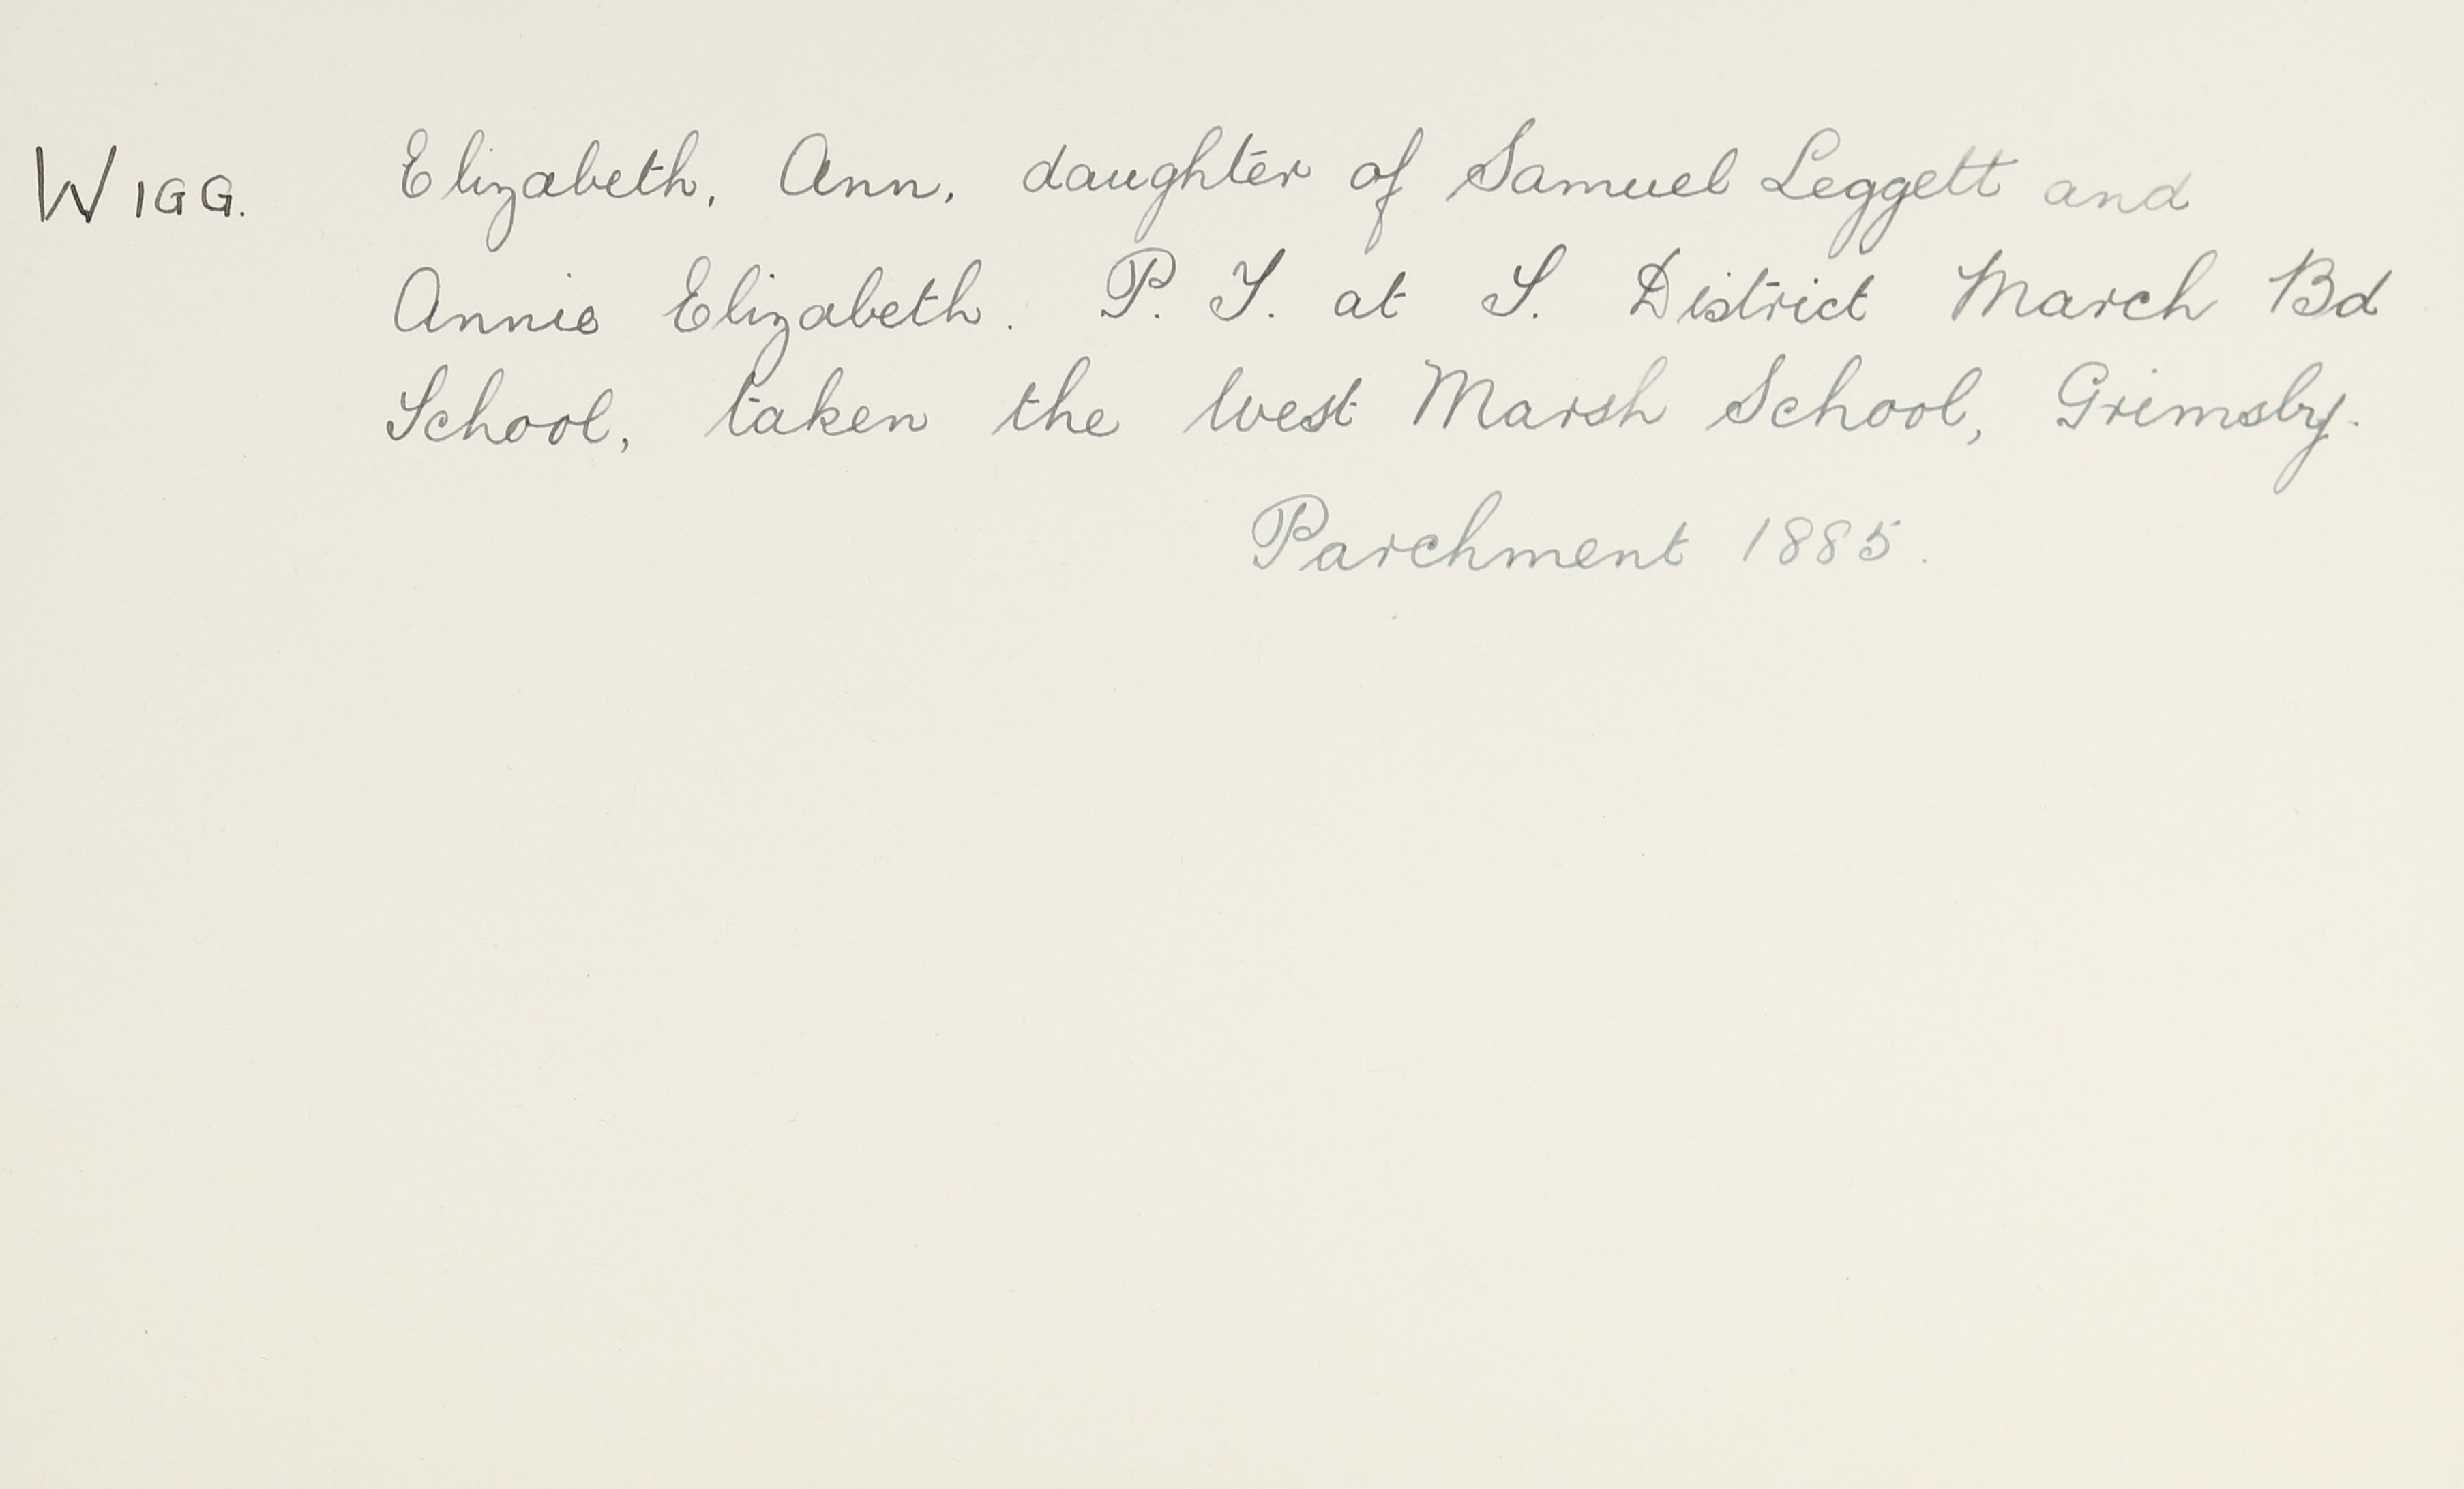 WIGG. Elizabeth, Ann, daughter of Samuel Leggett and
Annie Elizabeth. P. T. at S. District March Bd
School, taken the West Marsh School, Grimsby.
Parchment 1885.